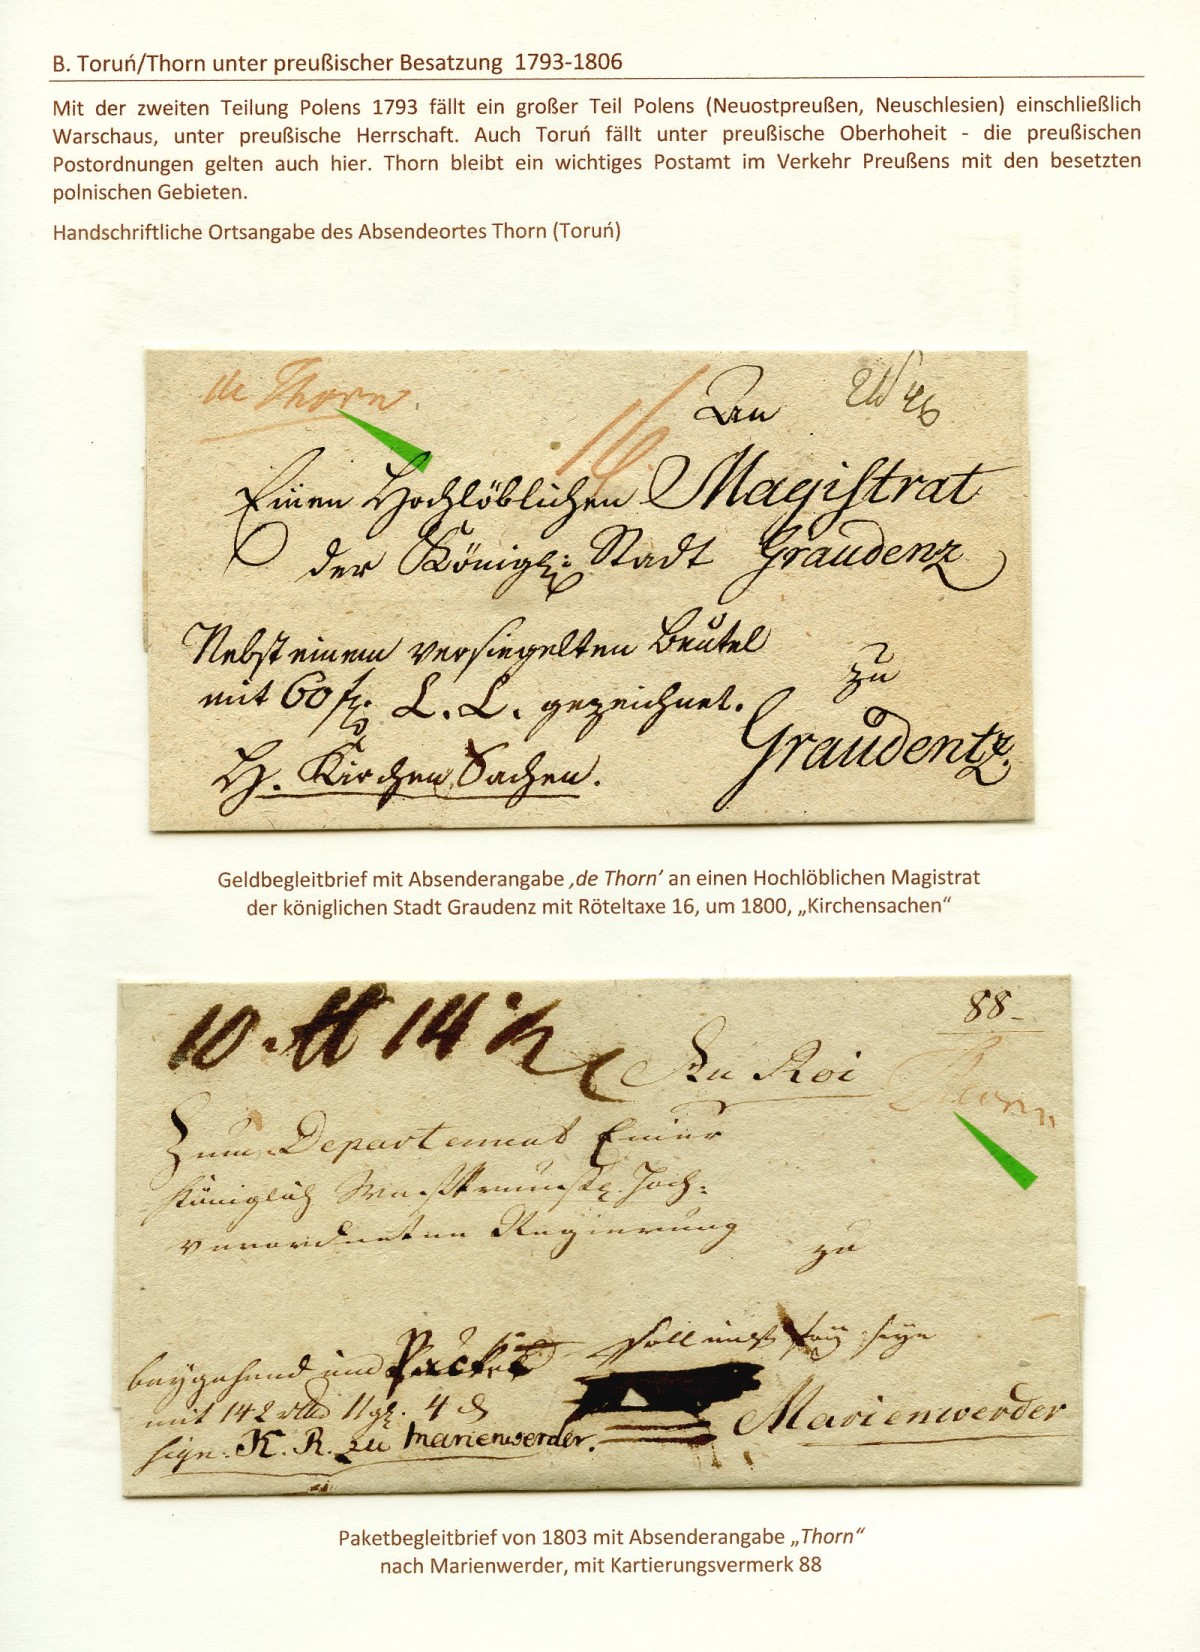 B. Toruń/Thorn unter preußischer Besatzung  1793-1806
Mit der zweiten Teilung Polens 1793 fällt ein großer Teil Polens (Neuostpreußen, Neuschlesien) einschließlich
Warschaus, unter preußische Herrschaft. Auch Toruń fällt unter preußische Oberhoheit - die preußischen
Postordnungen gelten auch hier. Thorn bleibt ein wichtiges Postamt im Verkehr Preußens mit den besetzten
polnischen Gebieten.
Handschriftliche Ortsangabe des Absendeortes Thorn (Toruń)
de Thorn.
16
An
Einen Hochlöblichen Magistrat
der Königl: Stadt Graudenz
Nebst einem versiegelten Beutel
mit 60 L. L. gezeichnet.
zu
Graudentz.
H. Kirchen Sachen.
Geldbegleitbrief mit Absenderangabe ‚de Thorn’ an einen Hochlöblichen Magistrat
der königlichen Stadt Graudenz mit Röteltaxe 16, um 1800, „Kirchensachen“
88-
10 14
Au Roi
Thorn
Zum Departement Einer
Königlich Hoch:
verordneten Regierung
zu
beygehend
mit 142 11 4
sign. K. R. zu Marienwerder.
Marienwerder
Paketbegleitbrief von 1803 mit Absenderangabe „Thorn“
nach Marienwerder, mit Kartierungsvermerk 88